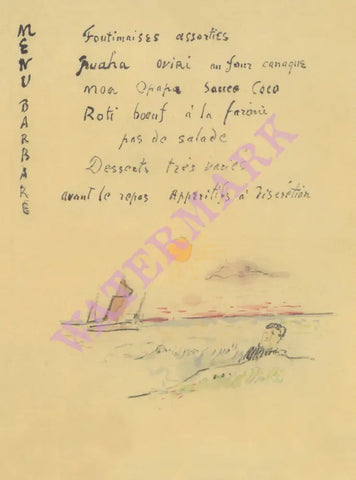 MENU BARBARE
Foutimaises assorties
Puaha oviri au four canaque
moa Opapa Sauce Coco
Roti bœuf à la farani
pas de salade
Desserts très variés
avant le repas Appéritifs à discrétion
WATERMARK